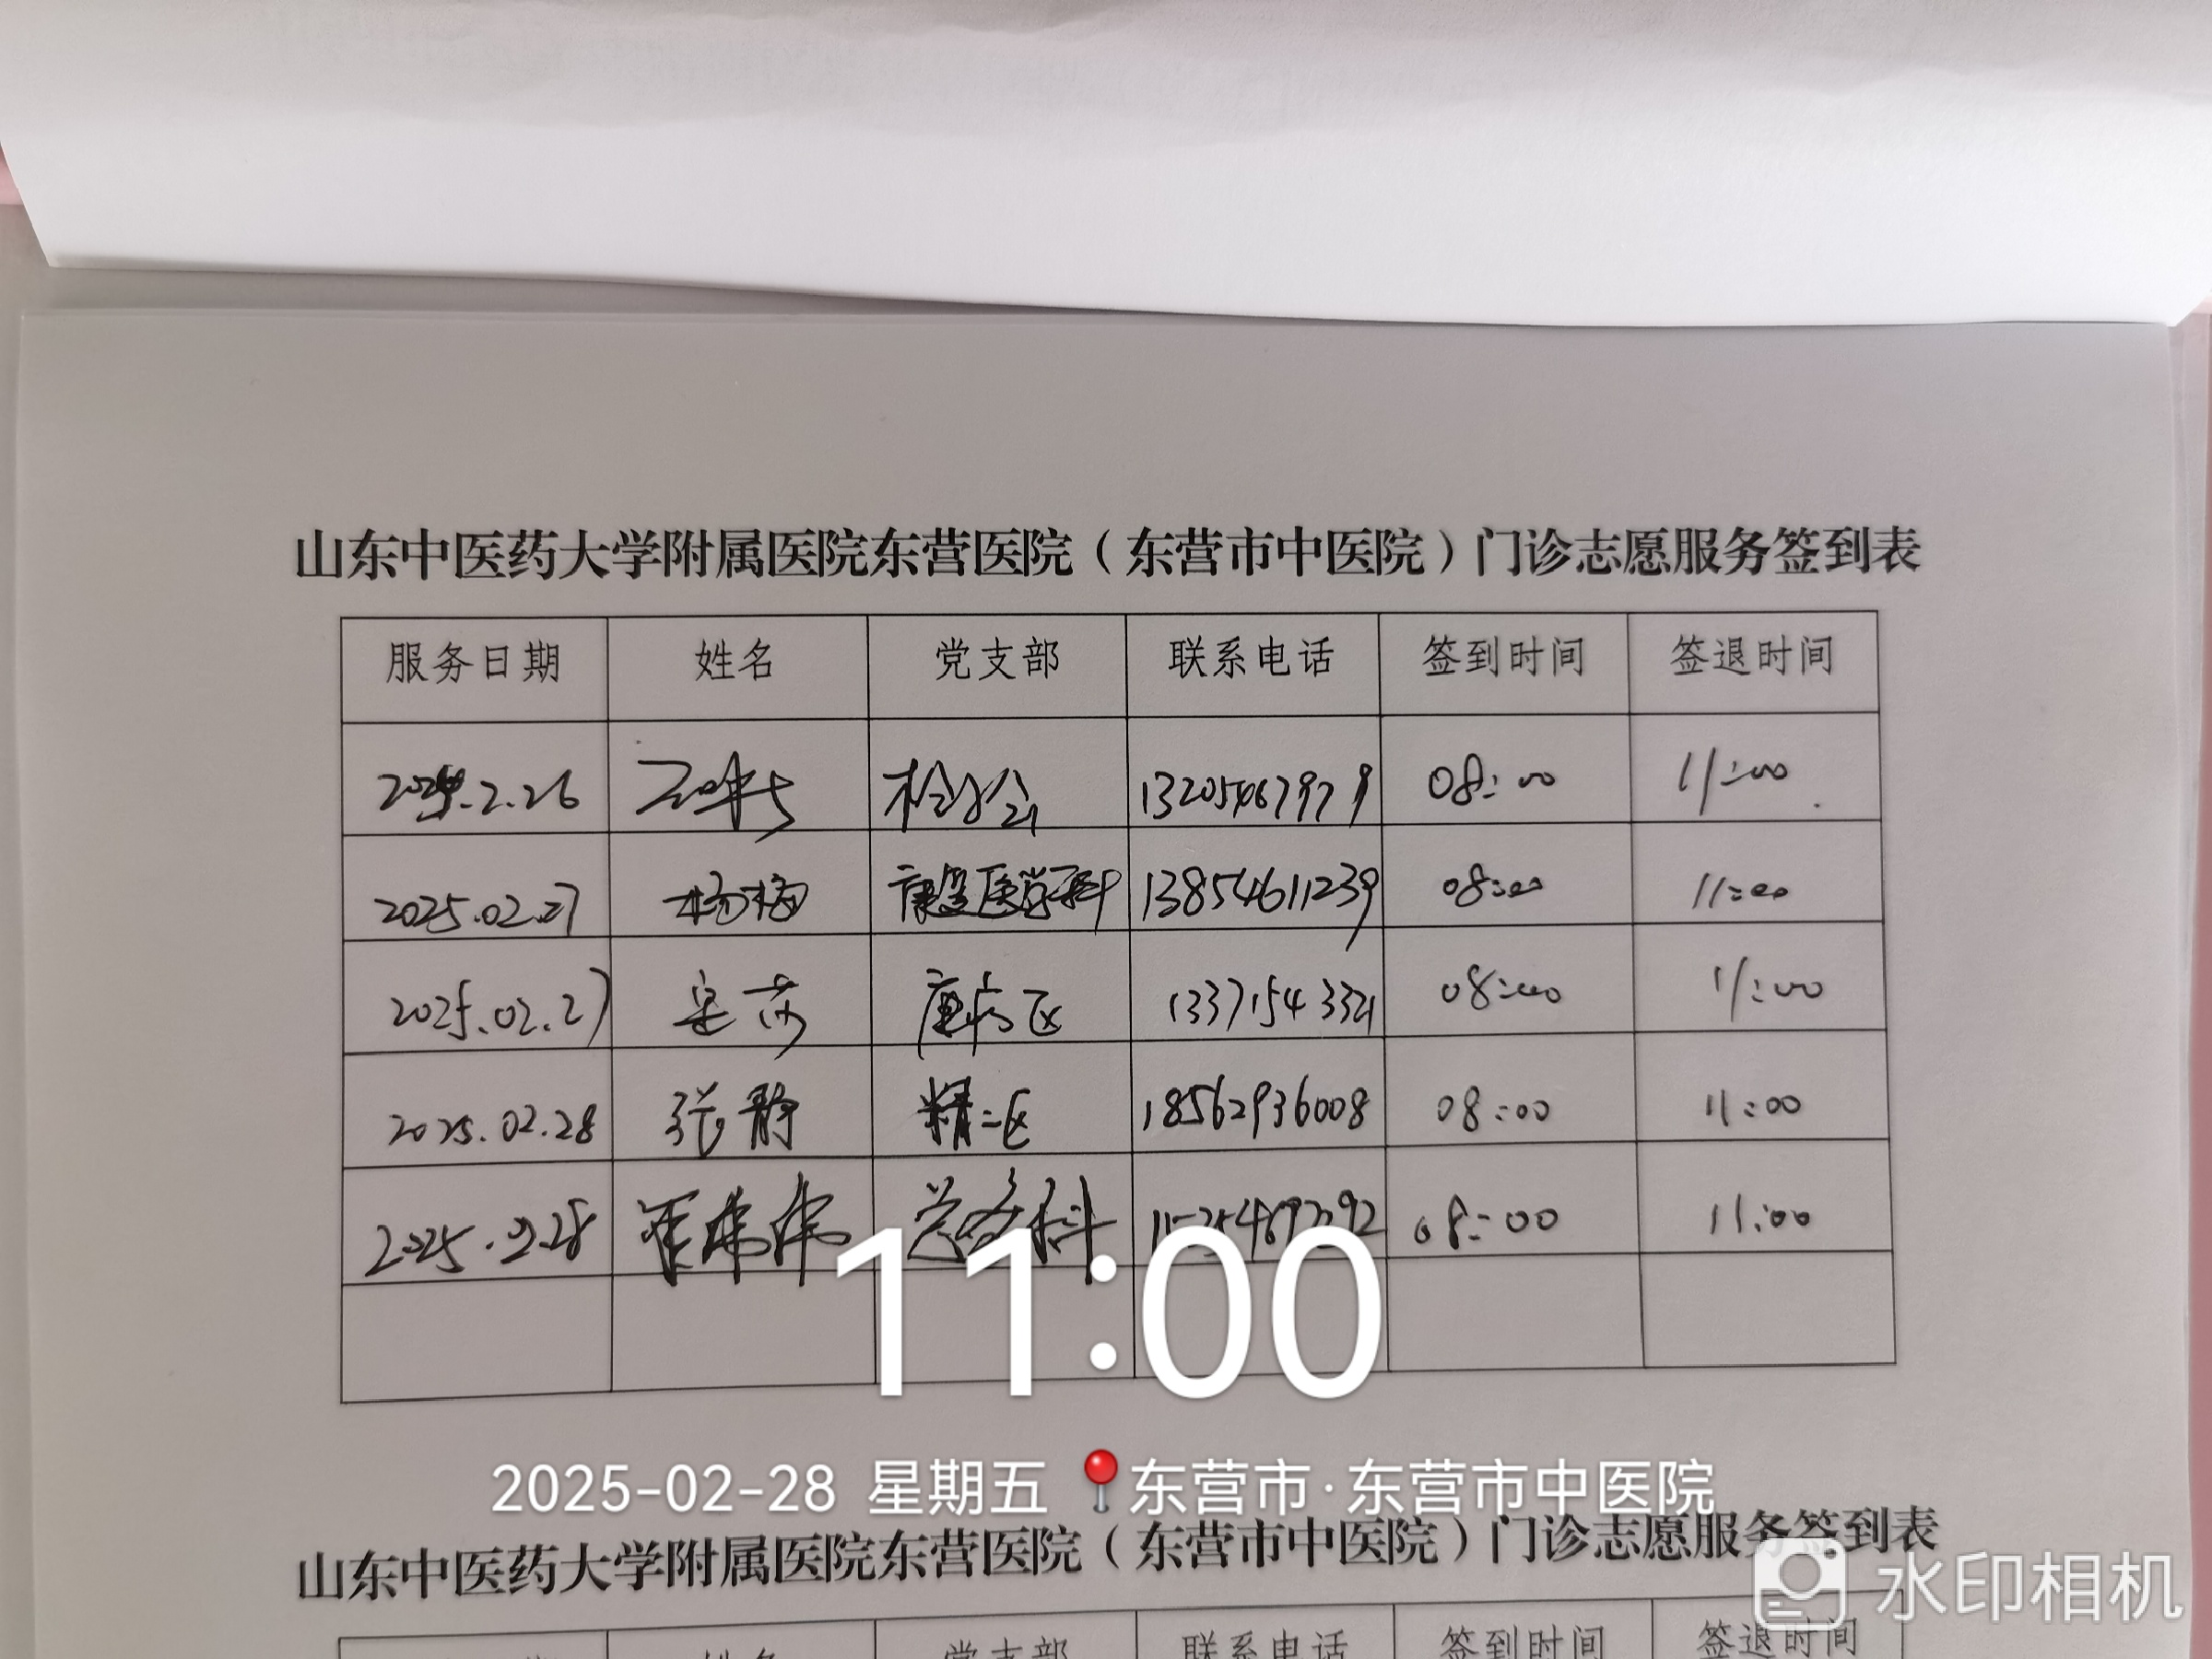 山东中医药大学附属医院东营医院（东营市中医院）门诊志愿服务签到表
服务日期 姓名 党支部 联系电话 签到时间 签退时间
2.26 13205467979 08:00 11:00
2025.02.27 杨梅 康复医学科 13854611239 08:00 11:00
2025.02.27 病区 13371543321 08:00 11:00
2025.02.28 张静 精二区 18562936008 08:00 11:00
2025.2.28 08:00 11:00
11:00
2025-02-28 星期五 东营市·东营市中医院
山东中医药大学附属医院东营医院（东营市中医院）门诊志愿服务签到表
水印相机
姓名 党支部 联系电话 签到时间 签退时间